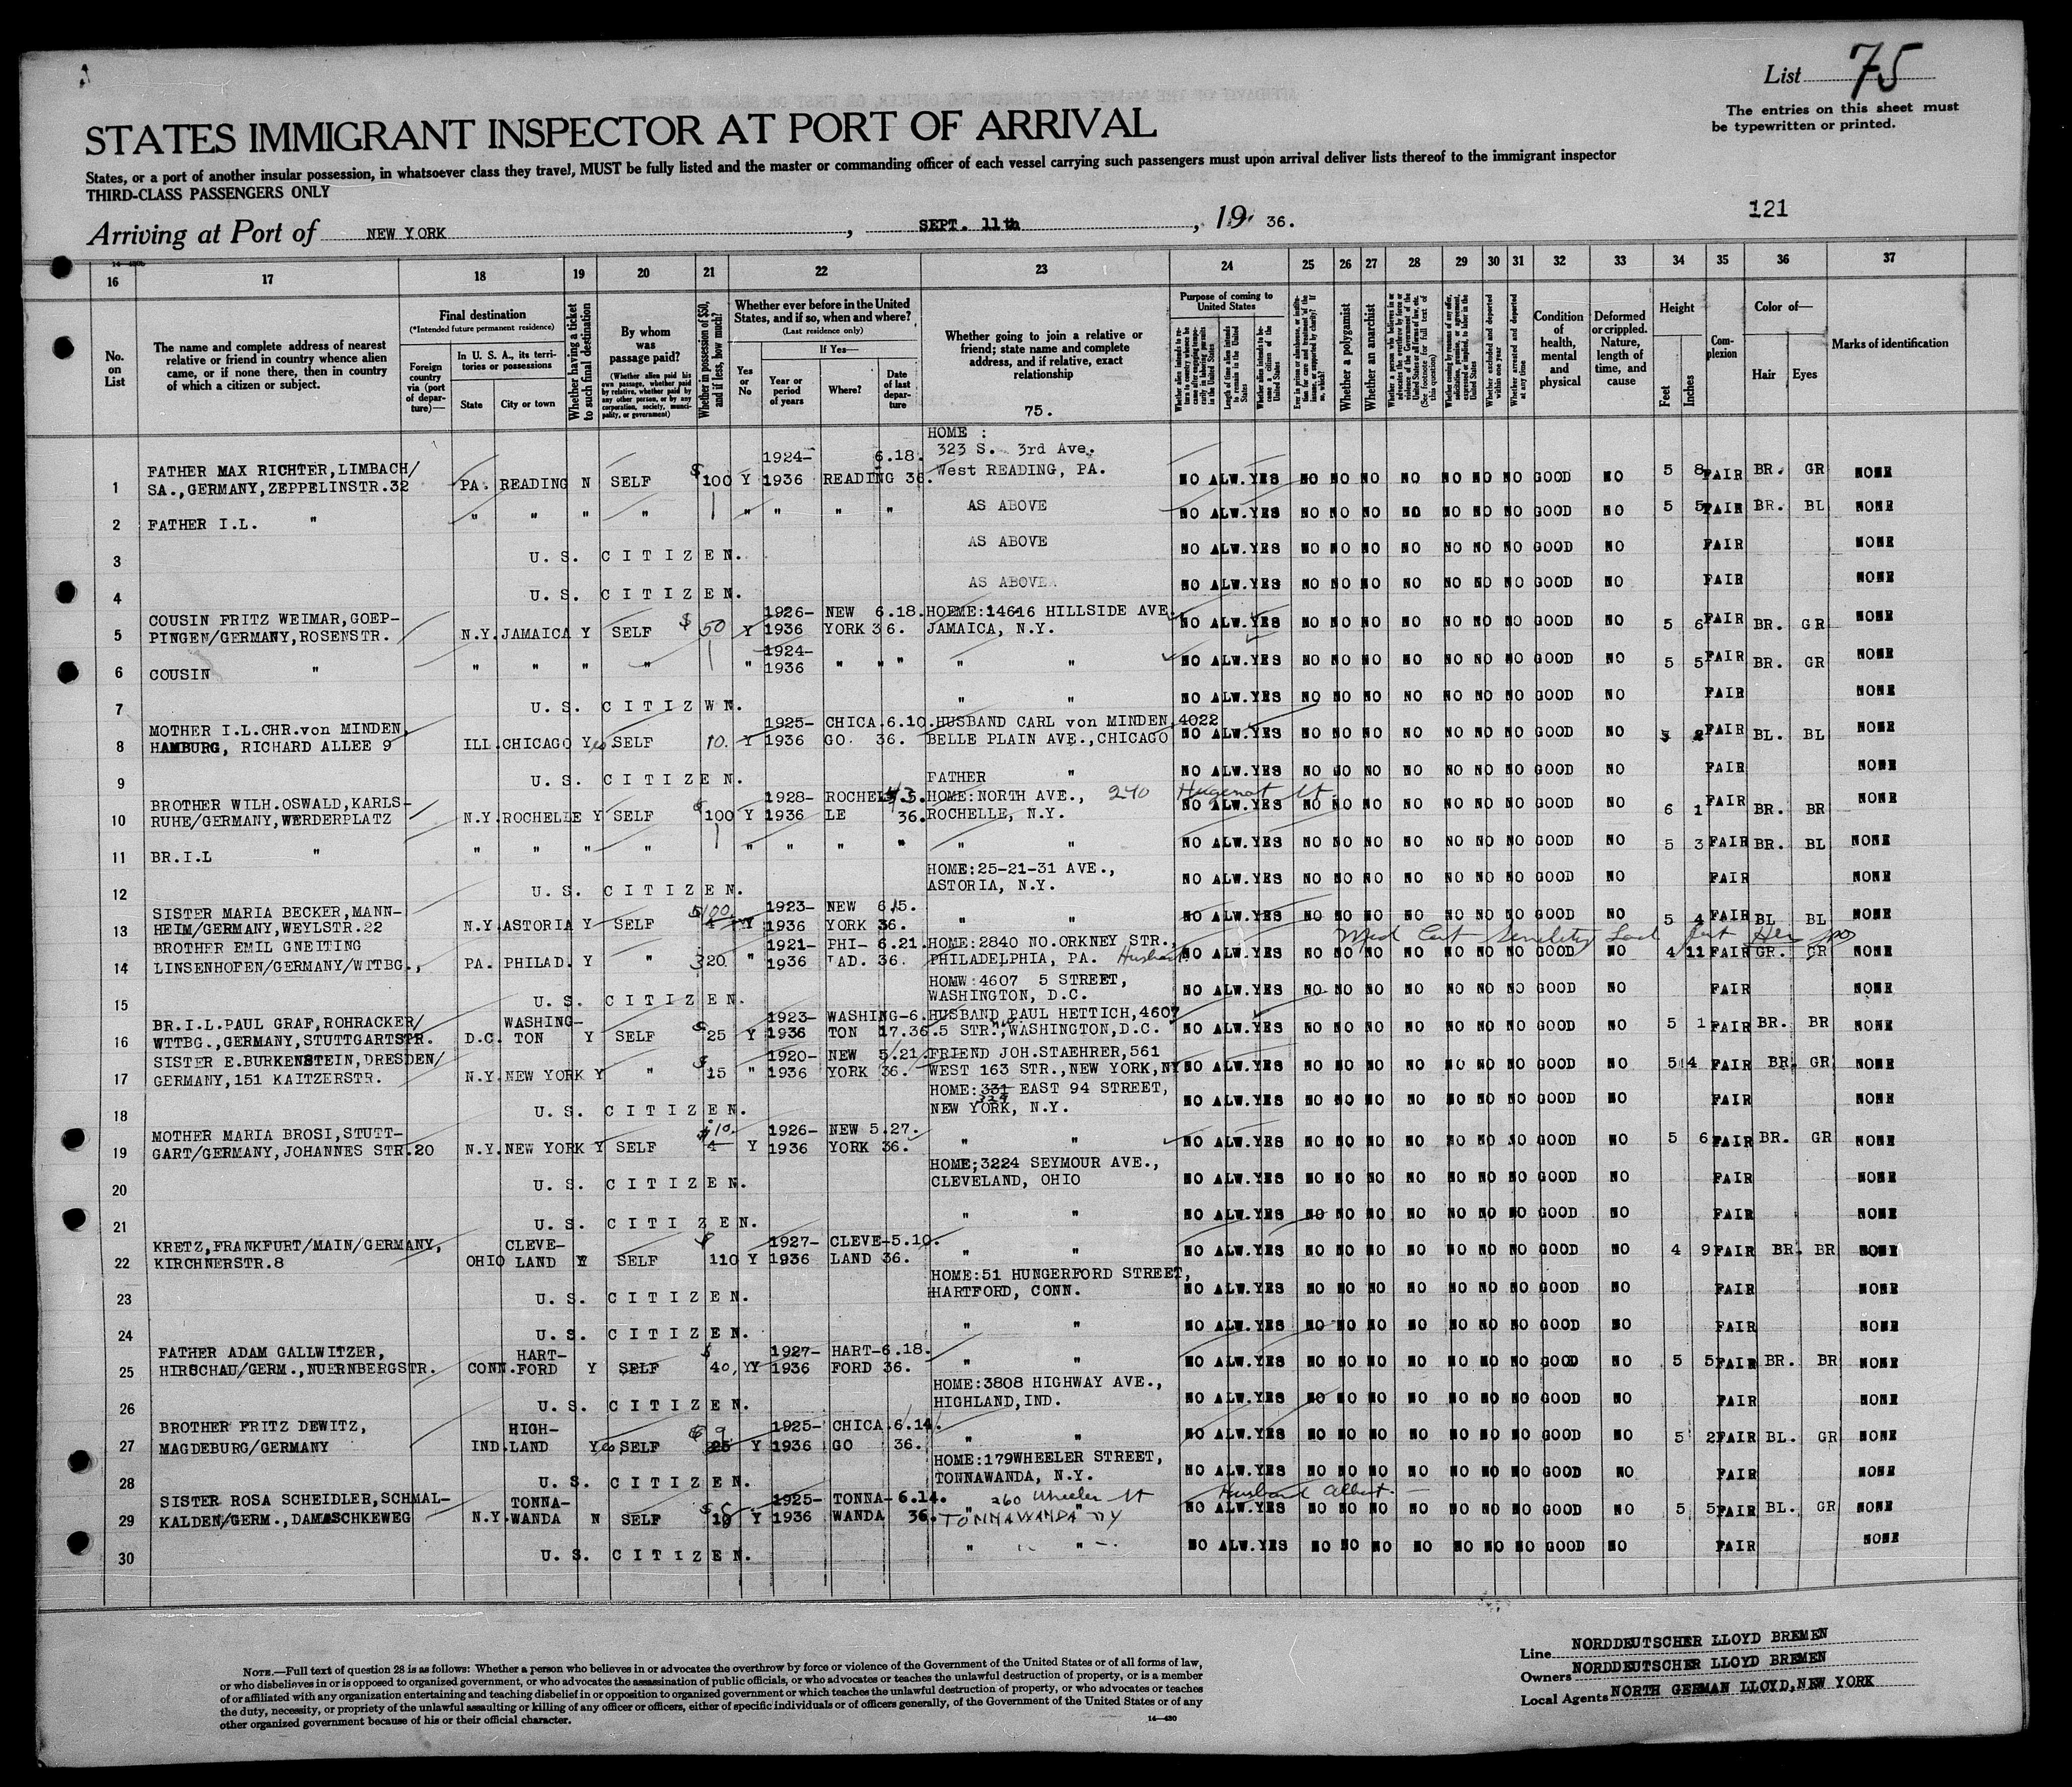 List 75
The entries on this sheet must
be typewritten or printed.
STATES IMMIGRANT INSPECTOR AT PORT OF ARRIVAL
States, or a port of another insular possession, in whatsoever class they travel, MUST be fully listed and the master or commanding officer of each vessel carrying such passengers must upon arrival deliver lists thereof to the immigrant inspector
THIRD-CLASS PASSENGERS ONLY
121
Arriving at Port of NEW YORK, SEPT. 11th, 19 36.
16 17 18 19 20 21 22 23 24 25 26 27 28 29 30 31 32 33 34 35 36 37
No. on List
The name and complete address of nearest relative or friend in country whence alien came, or if none there, then in country of which a citizen or subject.
Final destination
(*Intended future permanent residence)
Foreign country via (port of departure)—
In U. S. A., its territories or possessions
State
City or town
Whether having a ticket to such final destination
By whom was passage paid?
(Whether alien paid his own passage, whether paid by relative, whether paid by any other person, or by any corporation, society, municipality, or government)
Whether in possession of $50, and if less, how much?
Whether ever before in the United States, and if so, when and where?
(Last residence only)
Yes or No
If Yes—
Year or period of years
Where?
Date of last departure
Whether going to join a relative or friend; state name and complete address, and if relative, exact relationship
75.
Purpose of coming to United States
Whether alien intends to return to country whence he came after engaging temporarily in laboring pursuits in the United States
Length of time alien intends to remain in the United States
Whether alien intends to become a citizen of the United States
Whether a polygamist
Whether an anarchist
Whether excluded and deported within one year
Whether arrested and deported at any time
Condition of health, mental and physical
Deformed or crippled. Nature, length of time, and cause
Height
Feet
Inches
Complexion
Color of—
Hair
Eyes
Marks of identification
HOME :
323 S. 3rd Ave.
1 FATHER MAX RICHTER,LIMBACH/ SA.,GERMANY,ZEPPELINSTR.32 PA. READING N SELF $100 Y 1924-1936 READING 6.18.36. West READING, PA. NO ALW.YES NO NO NO NO NO NO NO GOOD NO 5 8 FAIR BR. GR NONE
2 FATHER I.L. " " " " " " " " " AS ABOVE NO ALW.YES NO NO NO NO NO NO NO GOOD NO 5 5 FAIR BR. BL NONE
3 U. S. CITIZEN. AS ABOVE NO ALW.YES NO NO NO NO NO NO NO GOOD NO FAIR NONE
4 U. S. CITIZEN. AS ABOVE NO ALW.YES NO NO NO NO NO NO NO GOOD NO FAIR NONE
5 COUSIN FRITZ WEIMAR,GOEP-PINGEN/GERMANY,ROSENSTR. N.Y. JAMAICA Y SELF $ 50 Y 1926-1936 NEW YORK 6.18.36. HOEME:14616 HILLSIDE AVE. JAMAICA, N.Y. NO ALW.YES NO NO NO NO NO NO NO GOOD NO 5 6 FAIR BR. GR NONE
6 COUSIN " " " " " " 1924-1936 " " " " " NO ALW.YES NO NO NO NO NO NO NO GOOD NO 5 5 FAIR BR. GR NONE
7 U. S. CITIZWN. " " NO ALW.YES NO NO NO NO NO NO NO GOOD NO FAIR NONE
8 MOTHER I.L.CHR.von MINDEN, HAMBURG, RICHARD ALLEE 9 ILL. CHICAGO Yes SELF 10. Y 1925-1936 CHICA.GO. 6.10.36. HUSBAND CARL von MINDEN,4022 BELLE PLAIN AVE.,CHICAGO NO ALW.YES NO NO NO NO NO NO NO GOOD NO FAIR BL. BL NONE
9 U. S. CITIZEN. FATHER " NO ALW.YES NO NO NO NO NO NO NO GOOD NO FAIR NONE
10 BROTHER WILH.OSWALD,KARLS-RUHE/GERMANY,WERDERPLATZ N.Y. ROCHELLE Y SELF $100 Y 1928-1936 ROCHEL-LE 36. HOME:NORTH AVE., 240 Hugenot St. ROCHELLE, N.Y. NO ALW.YES NO NO NO NO NO NO NO GOOD NO 6 1 FAIR BR. BR NONE
11 BR.I.L " " " " " " " " " " " NO ALW.YES NO NO NO NO NO NO NO GOOD NO 5 3 FAIR BR. BL NONE
12 U. S. CITIZEN. HOME:25-21-31 AVE., ASTORIA, N.Y. NO ALW.YES NO NO NO NO NO NO NO GOOD NO FAIR NONE
13 SISTER MARIA BECKER,MANN-HEIM/GERMANY,WEYLSTR.22 N.Y. ASTORIA Y SELF $100 Y 1923-1936 NEW YORK 6.5.36. " " NO ALW.YES NO NO NO NO NO NO NO GOOD NO 5 4 FAIR BL BL NONE
Med Cert Senility
14 BROTHER EMIL GNEITING LINSENHOFEN/GERMANY/WTTBG., PA. PHILAD. Y " 320 " 1921-1936 PHI-LAD. 6.21.36. HOME:2840 NO.ORKNEY STR., PHILADELPHIA, PA. Husband NO ALW.YES NO NO NO NO NO NO NO GOOD NO 4 11 FAIR GR. GR NONE
15 U. S. CITIZEN. HOMW:4607 5 STREET, WASHINGTON, D.C. NO ALW.YES NO NO NO NO NO NO NO GOOD NO FAIR NONE
16 BR.I.L.PAUL GRAF,ROHRACKER/ WTTBG.,GERMANY,STUTTGARTSTR. D.C. WASHING-TON Y SELF $25 Y 1923-1936 WASHING-TON 6.17.36. HUSBAND PAUL HETTICH,4607 5 STR.,WASHINGTON,D.C. NO ALW.YES NO NO NO NO NO NO NO GOOD NO 5 1 FAIR BR. BR NONE
17 SISTER E.BURKENSTEIN,DRESDEN/ GERMANY,151 KAITZERSTR. N.Y. NEW YORK Y " $15 " 1920-1936 NEW YORK 5.21.36. FRIEND JOH.STAEHRER,561 WEST 163 STR.,NEW YORK,NY NO ALW.YES NO NO NO NO NO NO NO GOOD NO 5 4 FAIR BR. GR NONE
18 U. S. CITIZEN. HOME:331 EAST 94 STREET, NEW YORK, N.Y. NO ALW.YES NO NO NO NO NO NO NO GOOD NO FAIR NONE
19 MOTHER MARIA BROSI,STUTT-GART/GERMANY,JOHANNES STR.20 N.Y. NEW YORK Y SELF $10. Y 1926-1936 NEW YORK 5.27.36. " " NO ALW.YES NO NO NO NO NO NO NO GOOD NO 5 6 FAIR BR. GR NONE
20 U. S. CITIZEN. HOME;3224 SEYMOUR AVE., CLEVELAND, OHIO NO ALW.YES NO NO NO NO NO NO NO GOOD NO FAIR NONE
21 U. S. CITIZEN. " " NO ALW.YES NO NO NO NO NO NO NO GOOD NO FAIR NONE
22 KRETZ,FRANKFURT/MAIN/GERMANY, KIRCHNERSTR.8 OHIO CLEVE-LAND Y SELF $110 Y 1927-1936 CLEVE-LAND 5.10.36. " " NO ALW.YES NO NO NO NO NO NO NO GOOD NO 4 9 FAIR BR. BR NONE
23 U. S. CITIZEN. HOME:51 HUNGERFORD STREET, HARTFORD, CONN. NO ALW.YES NO NO NO NO NO NO NO GOOD NO FAIR NONE
24 U. S. CITIZEN. " " NO ALW.YES NO NO NO NO NO NO NO GOOD NO FAIR NONE
25 FATHER ADAM GALLWITZER, HIRSCHAU/GERM.,NUERNBERGSTR. CONN. HART-FORD Y SELF $ 40, Y 1927-1936 HART-FORD 6.18.36. " " NO ALW.YES NO NO NO NO NO NO NO GOOD NO 5 5 FAIR BR. BR NONE
26 U. S. CITIZEN. HOME:3808 HIGHWAY AVE., HIGHLAND,IND. NO ALW.YES NO NO NO NO NO NO NO GOOD NO FAIR NONE
27 BROTHER FRITZ DEWITZ, MAGDEBURG/GERMANY IND. HIGH-LAND Yes SELF $ 9 25 Y 1925-1936 CHICA.GO 6.14.36. " " NO ALW.YES NO NO NO NO NO NO NO GOOD NO 5 2 FAIR BL. GR NONE
28 U. S. CITIZEN. HOME:179WHEELER STREET, TONNAWANDA, N.Y. NO ALW.YES NO NO NO NO NO NO NO GOOD NO FAIR NONE
260 Wheeler St Husband Albert.
29 SISTER ROSA SCHEIDLER,SCHMAL-KALDEN/GERM.,DAMASCHKEWEG N.Y. TONNA-WANDA N SELF $ Y 1925-1936 TONNA-WANDA 6.14.36. " " TONNAWANDA NY NO ALW.YES NO NO NO NO NO NO NO GOOD NO 5 5 FAIR BL. GR NONE
30 U. S. CITIZEN. " " NO ALW.YES NO NO NO NO NO NO NO GOOD NO FAIR NONE
NOTE.—Full text of question 28 is as follows: Whether a person who believes in or advocates the overthrow by force or violence of the Government of the United States or of all forms of law,
or who disbelieves in or is opposed to organized government, or who advocates the assassination of public officials, or who advocates or teaches the unlawful destruction of property, or is a member
of or affiliated with any organization entertaining and teaching disbelief in or opposition to organized government or which teaches the unlawful destruction of property, or who advocates or teaches
the duty, necessity, or propriety of the unlawful assaulting or killing of any officer or officers, either of specific individuals or of officers generally, of the Government of the United States or of any
other organized government because of his or their official character.
14—430
Line NORDDEUTSCHER LLOYD BREMEN
Owners NORDDEUTSCHER LLOYD BREMEN
Local Agents NORTH GERMAN LLOYD,NEW YORK